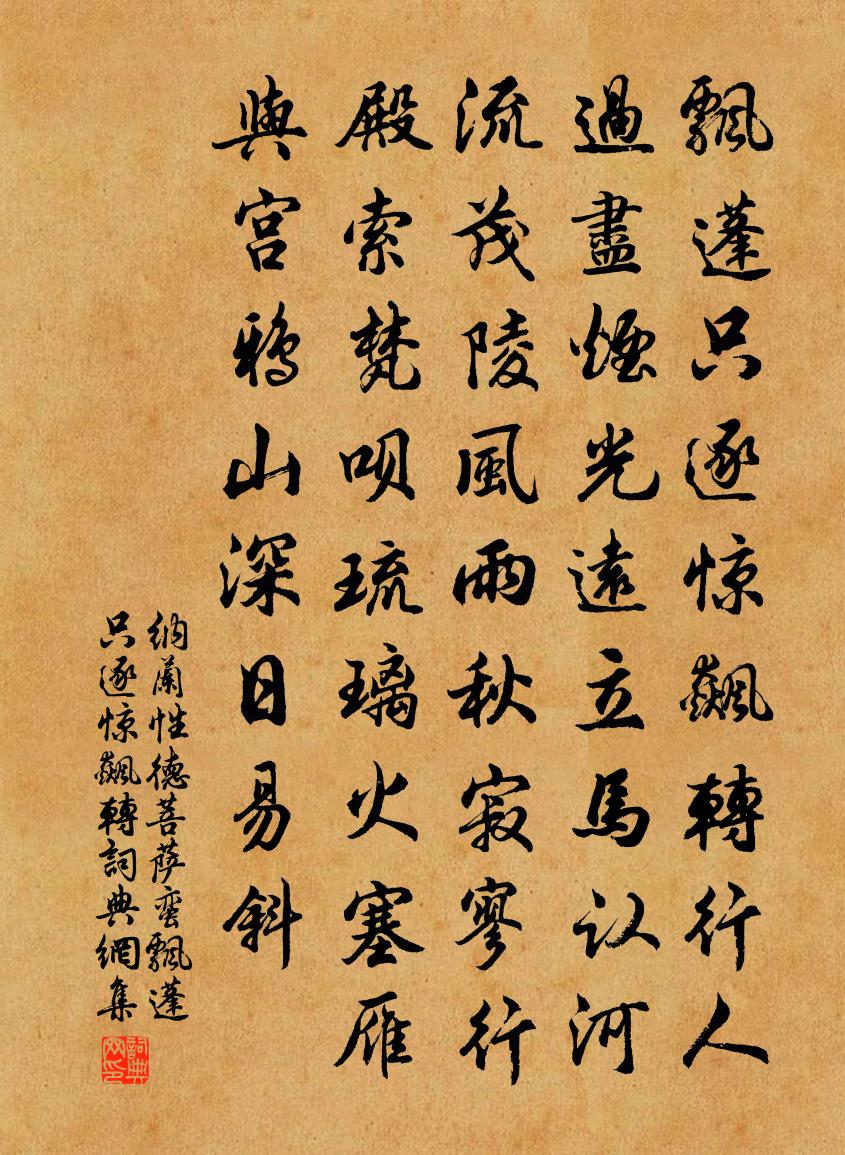 飄蓬只逐惊飆轉行人
過盡煙光遠立馬认河
流茂陵風雨秋寂寥行
殿索梵呗琉璃火塞雁
與宫鴉山深日易斜
纳蘭性德菩萨蛮飄蓬
只逐惊飆轉詞典網集
詞典网印